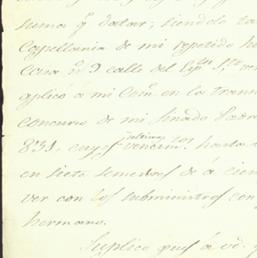 suma q.e datar, siendolo ta
Capellania de mi repetido h
Casa n.o 9 calle del Esp.tu S.to
aplicó a mi Com.n en la trans
concurso de mi finado Padre
831, cuyos ultimos vencim.tos hasta
en siete semestres de á cien
ver con los subministros con
hermano.
Suplico pues á vd.